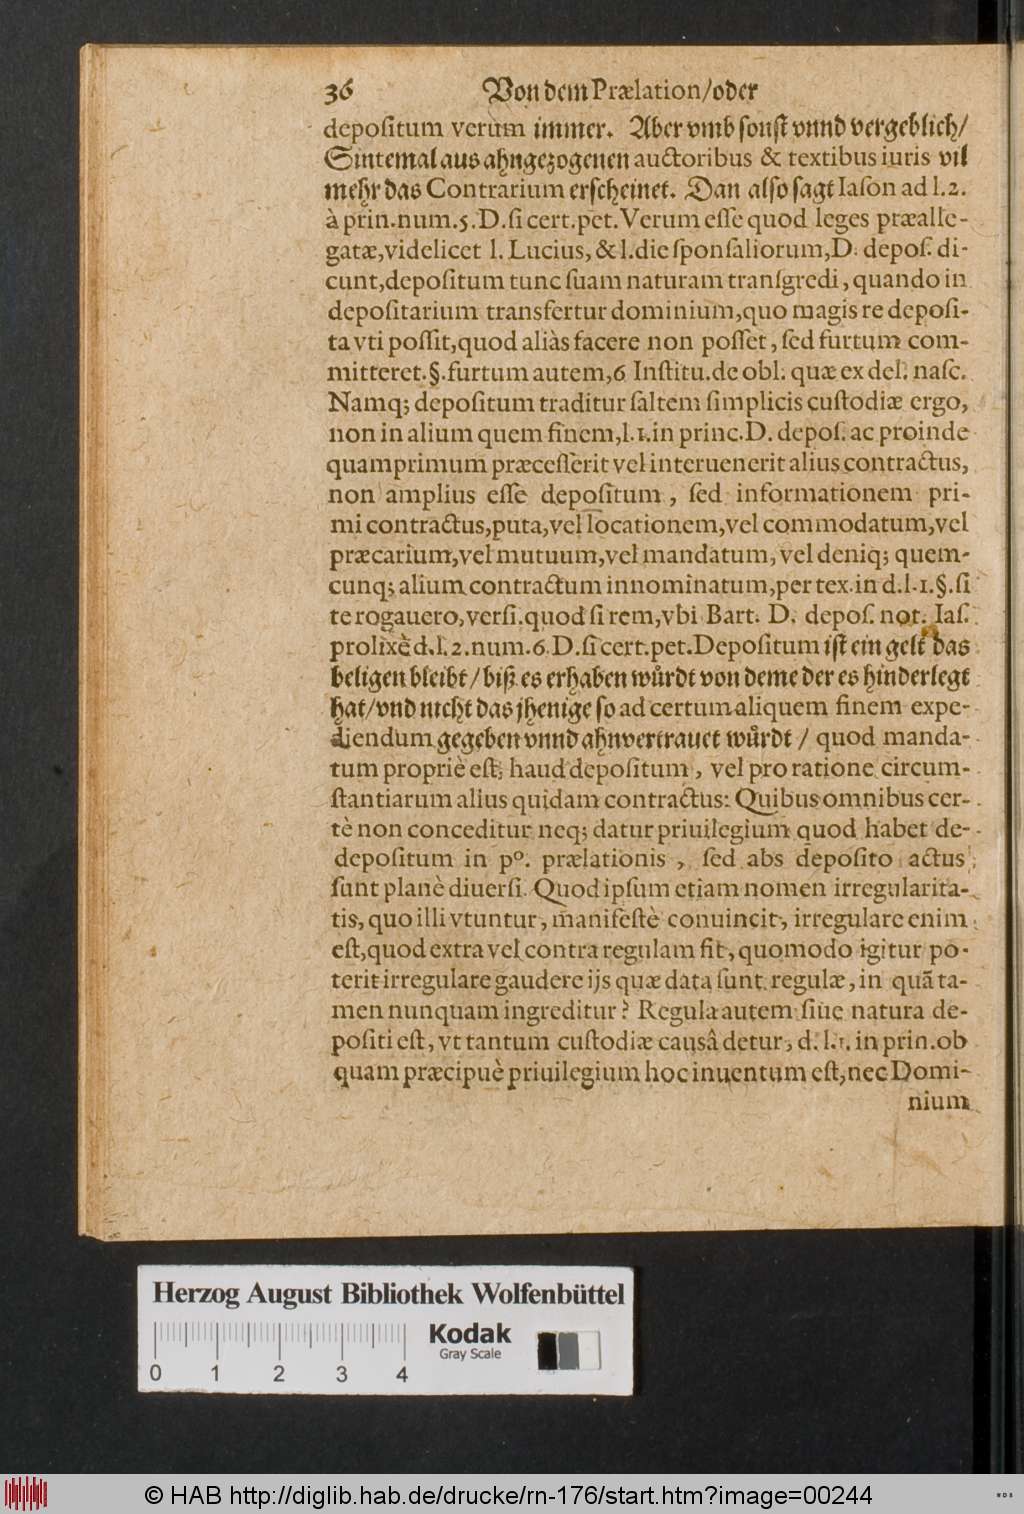 36 Von dem Prælation/oder
depositum verùm immer. Aber vmb sonst vnnd vergeblich/
Sintemal aus ahngezogenen auctoribus & textibus iuris vil
mehr das Contrarium erscheinet. Dan also sagt Iason ad l. 2.
à prin. num. 5. D. si cert. pet. Verum esse quod leges præalle-
gatæ, videlicet l. Lucius, & l. die sponsaliorum, D. depos. di-
cunt, depositum tunc suam naturam transgredi, quando in
depositarium transfertur dominium, quo magis re deposi-
ta vti possit, quod aliàs facere non posset, sed furtum com-
mitteret. §. furtum autem, 6 Institu. de obl. quæ ex del. nasc.
Namq; depositum traditur saltem simplicis custodiæ ergo,
non in alium quem finem, l. 1. in princ. D. depos. ac proinde
quamprimum præcesserit vel interuenerit alius contractus,
non amplius esse depositum, sed informationem pri-
mi contractus, puta, vel locationem, vel commodatum, vel
præcarium, vel mutuum, vel mandatum, vel deniq; quem-
cunq; alium contractum innominatum, per tex. in d. l. 1. §. si
te rogauero, versi. quod si rem, vbi Bart. D. depos. not. Ias.
prolixè d. l. 2. num. 6. D. si cert. pet. Depositum ist ein gelt das
beligen bleibt / biß es erhaben wůrdt von deme der es hinderlegt
hat/vnd nicht das jhenige so ad certum aliquem finem expe-
diendum gegeben vnnd ahnvertrauet wůrdt / quod manda-
tum propriè est, haud depositum, vel pro ratione circum-
stantiarum alius quidam contractus: Quibus omnibus cer-
tè non conceditur neq; datur priuilegium quod habet de-
depositum in pº. prælationis, sed abs deposito actus
sunt planè diuersi. Quod ipsum etiam nomen irregularita-
tis, quo illi vtuntur, manifestè conuincit, irregulare enim
est, quod extra vel contra regulam fit, quomodo igitur po-
terit irregulare gaudere ijs quæ data sunt regulæ, in quã ta-
men nunquam ingreditur? Regula autem siue natura de-
positi est, vt tantum custodiæ causâ detur, d. l. 1. in prin. ob
quam præcipuè priuilegium hoc inuentum est, nec Domi-
nium
Herzog August Bibliothek Wolfenbüttel
Kodak
Gray Scale
0 1 2 3 4
© HAB http://diglib.hab.de/drucke/rn-176/start.htm?image=00244